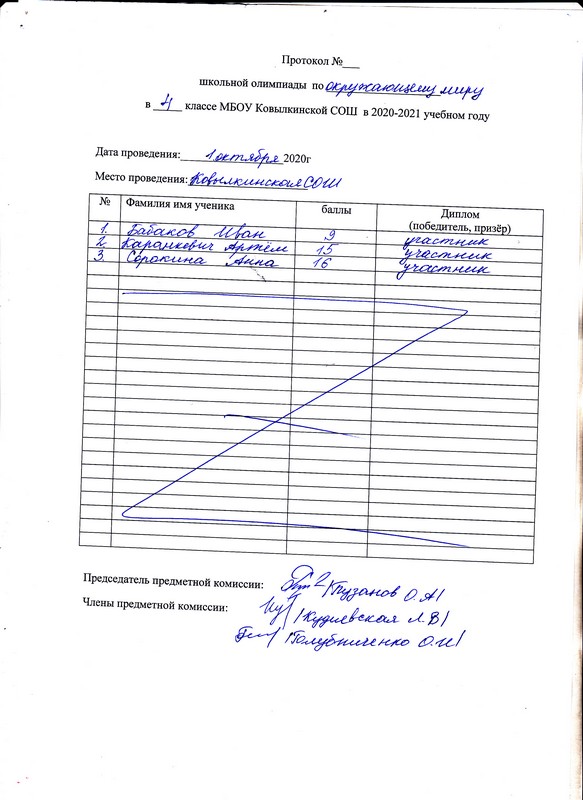 Протокол №___
школьной олимпиады по окружающему миру
в 4 классе МБОУ Ковылкинской СОШ в 2020-2021 учебном году
Дата проведения: 1 октября 2020г
Место проведения: Ковылкинская СОШ
№ Фамилия имя ученика баллы Диплом (победитель, призёр)
1. Бабаков Иван 9 участник
2. Каранкевич Артём 15 участник
3. Сорокина Анна 16 участник
Председатель предметной комиссии: /Пузанов О.А/
Члены предметной комиссии: /Кудиевская Л.В/
/Голубниченко О.И/